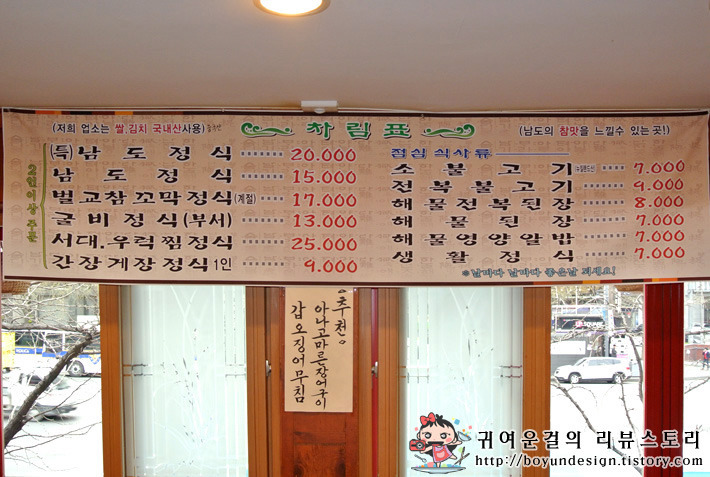 (저희 업소는 쌀,김치 국내산사용)
차림표
(남도의 참맛을 느낄수 있는곳!)
2인이상 주문
(특)남도정식 20.000
남도정식 15.000
벌교참꼬막정식(계절) 17.000
굴비정식(부서) 13.000
서대.우럭찜정식 25.000
간장게장정식1인 9.000
점심 식사류
소불고기 7.000
전복불고기 9.000
해물전복된장 8.000
해물된장 7.000
해물영양알밥 7.000
생활정식 7.000
날마다 날마다 좋은날 되세요!
추천
아나고마른장어구이
갑오징어무침
귀여운걸의 리뷰스토리
http://boyundesign.tistory.com/